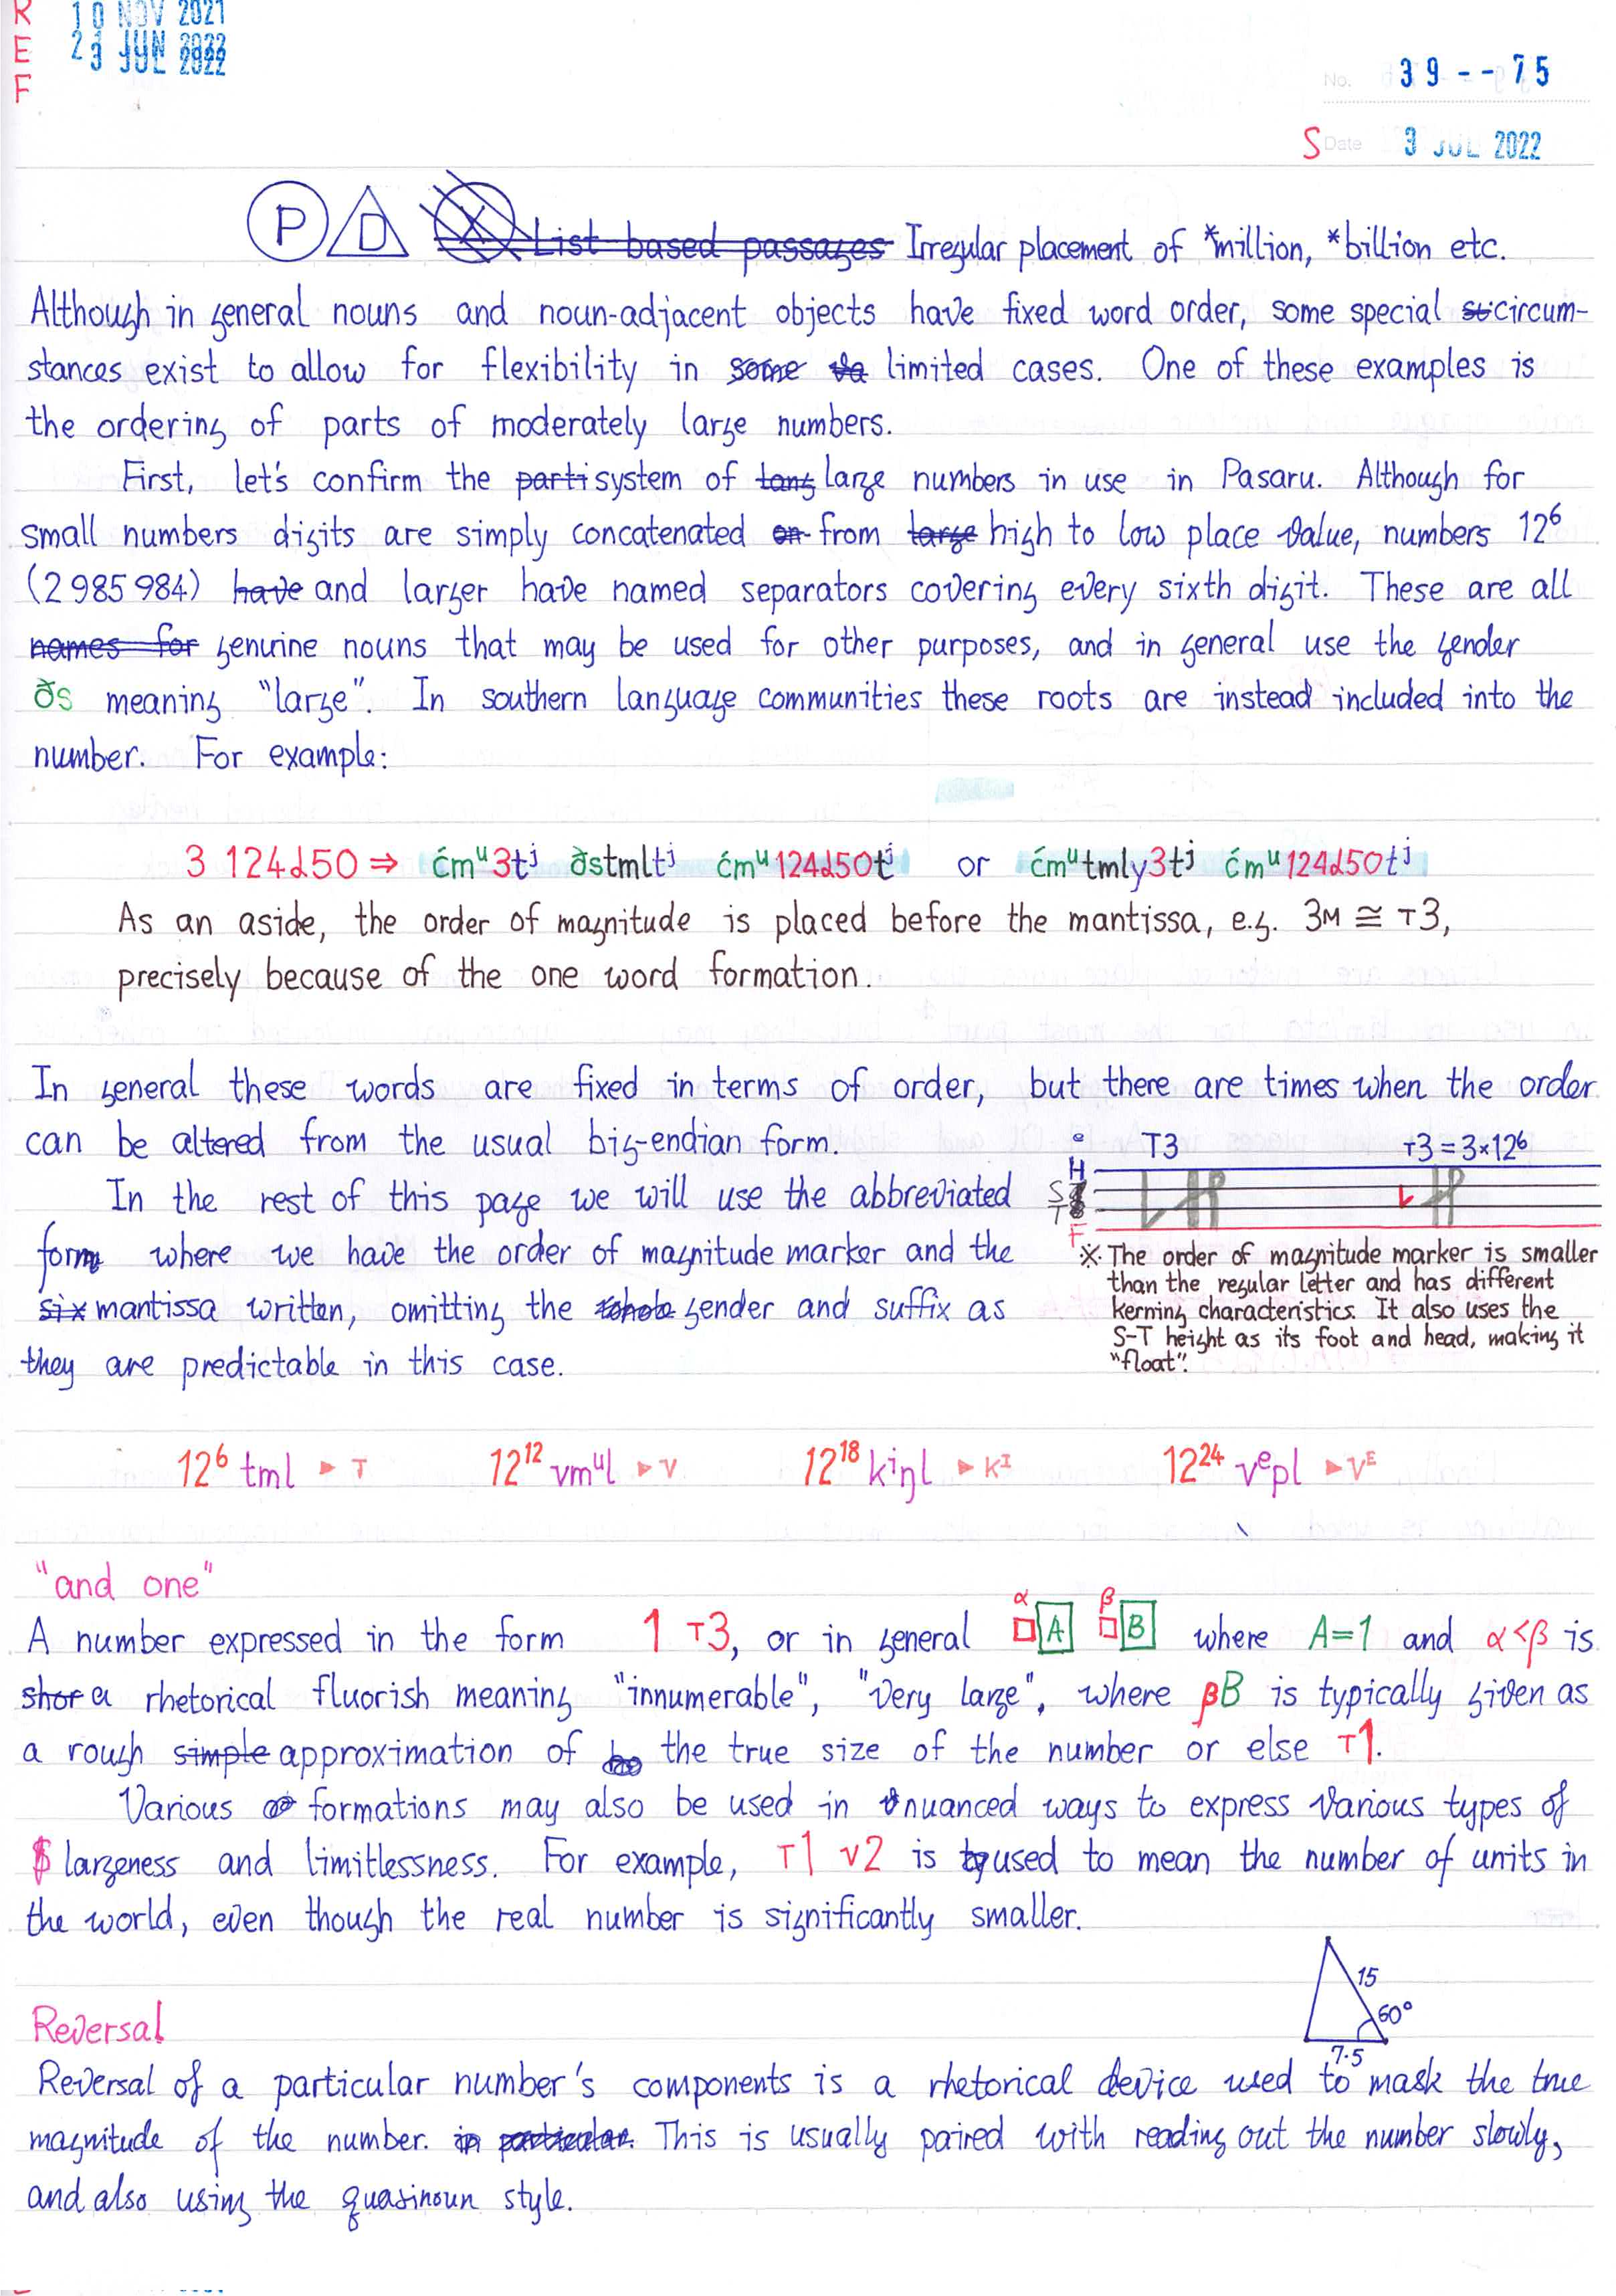 R
E
F
10 NOV 2021
23 JUL 2022
No. 39--75
S Date 3 JUL 2022
P D X List based passages Irregular placement of *million, *billion etc.
Although in general nouns and noun-adjacent objects have fixed word order, some special st circum-
stances exist to allow for flexibility in some limited cases. One of these examples is
the ordering of parts of moderately large numbers.
First, let's confirm the parti system of large numbers in use in Pasaru. Although for
small numbers digits are simply concatenated on from large high to low place value, numbers 12⁶
(2 985 984) have and larger have named separators covering every sixth digit. These are all
names for genuine nouns that may be used for other purposes, and in general use the gender
ðs meaning "large". In southern language communities these roots are instead included into the
number. For example:
3 124d50 ⇒ ćmᵘ3tʲ ðstmltʲ ćmᵘ124d50tʲ or ćmᵘtmly3tʲ ćmᵘ124d50tʲ
As an aside, the order of magnitude is placed before the mantissa, e.g. 3M ≅ T3,
precisely because of the one word formation.
In general these words are fixed in terms of order, but there are times when the order
can be altered from the usual big-endian form.
In the rest of this page we will use the abbreviated
form where we have the order of magnitude marker and the
six mantissa written, omitting the whole gender and suffix as
they are predictable in this case.
T3 T3 = 3×12⁶
H
S
T
F
※ The order of magnitude marker is smaller
than the regular letter and has different
kerning characteristics. It also uses the
S-T height as its foot and head, making it
"float".
12⁶ tml ▸ T 12¹² vmᵘl ▸ V 12¹⁸ kⁱŋl ▸ Kᴵ 12²⁴ vᵉpl ▸ Vᴱ
"and one"
A number expressed in the form 1 T3, or in general α□A β□B where A=1 and α<β is
a rhetorical fluorish meaning "innumerable", "very large", where βB is typically given as
a rough simple approximation of the true size of the number or else T1.
Various formations may also be used in nuanced ways to express various types of
largeness and limitlessness. For example, T1 V2 is used to mean the number of units in
the world, even though the real number is significantly smaller.
15
60°
7.5
Reversal
Reversal of a particular number's components is a rhetorical device used to mask the true
magnitude of the number. in particular. This is usually paired with reading out the number slowly,
and also using the quasinoun style.